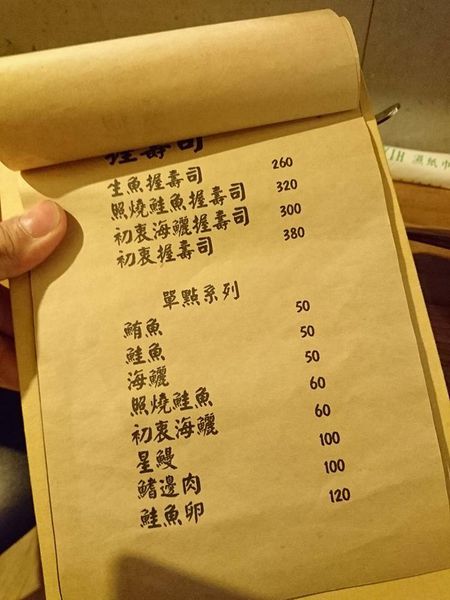 握壽司
生魚握壽司 260
照燒鮭魚握壽司 320
初衷海鱺握壽司 300
初衷握壽司 380
單點系列
鮪魚 50
鮭魚 50
海鱺 50
照燒鮭魚 60
初衷海鱺 60
星鰻 100
鰭邊肉 100
鮭魚卵 120
濕紙巾